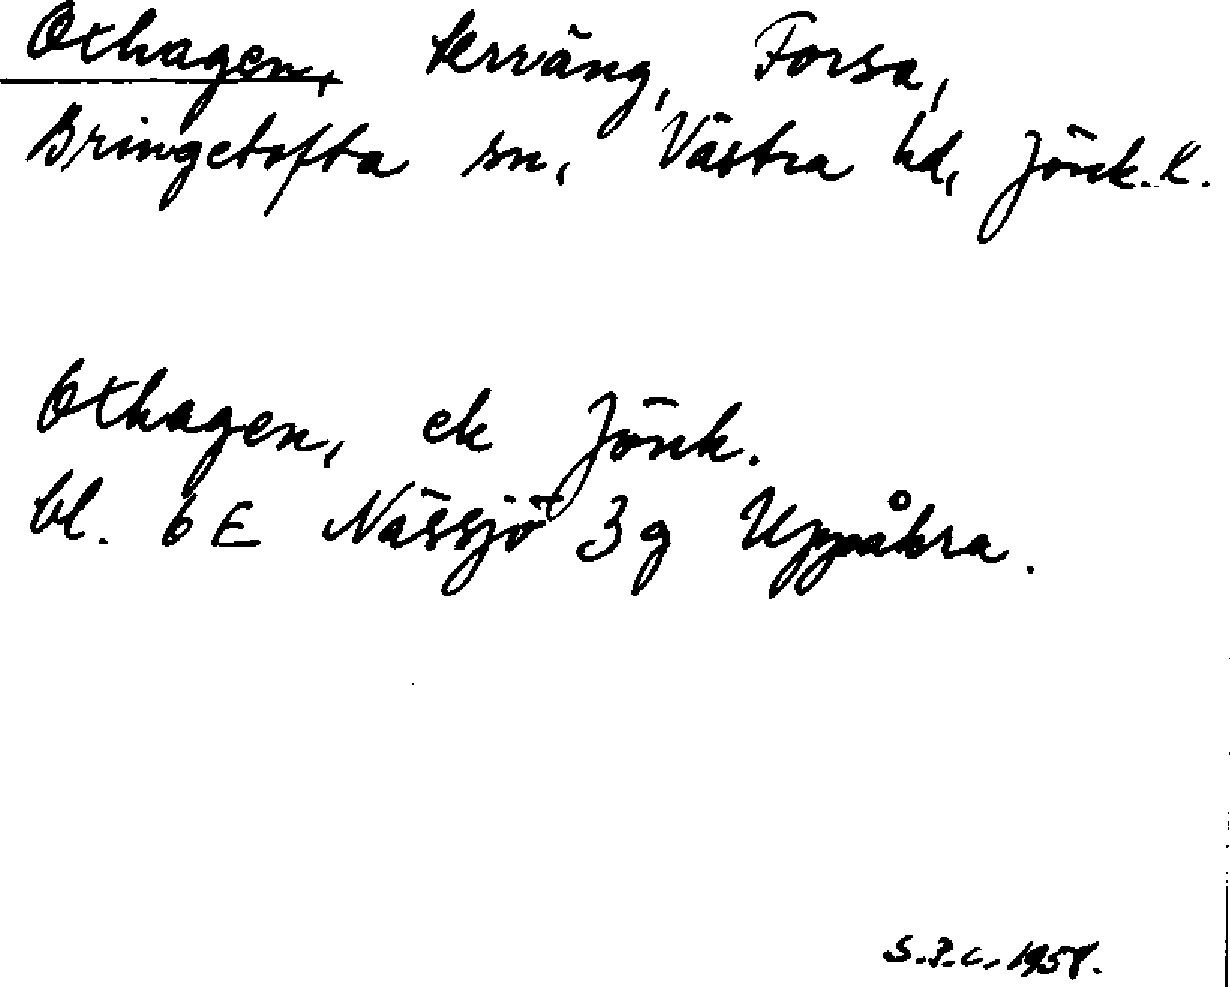 Oxhagen, terräng, Forsa,
Bringetofta sn, Västra hd, Jönk. l.
Oxhagen, ek Jönk.
bl. 6 E Nässjö 3 g Uppåkra.
S.P.C. 1958.